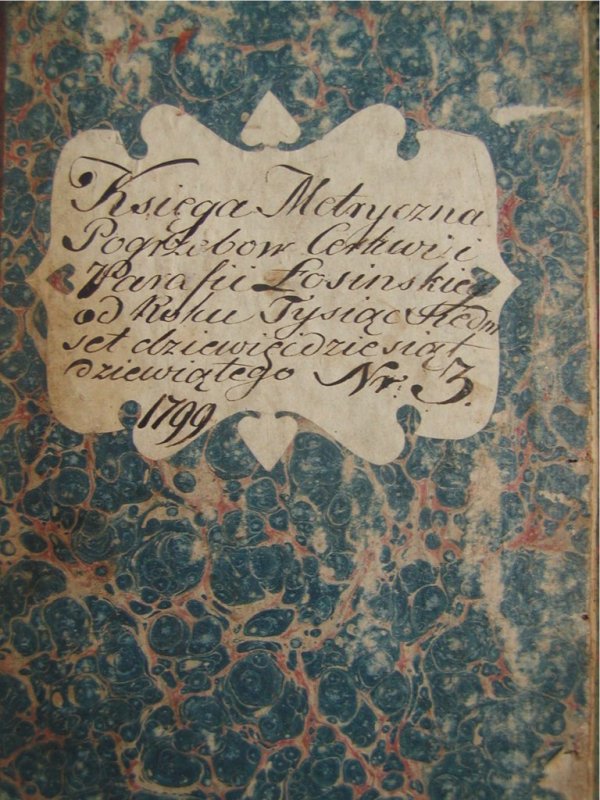 Księga Metryczna
Pogrzebow Cerkwi i
Parafii Łosinskiey
od Roku Tysiąc Siedm
set dziewięcdziesiąt
dziewiątego Nr: 3.
1799